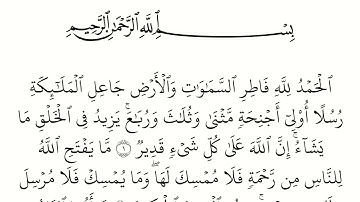 بِسْمِ ٱللَّهِ ٱلرَّحْمَٰنِ ٱلرَّحِيمِ
ٱلْحَمْدُ لِلَّهِ فَاطِرِ ٱلسَّمَٰوَٰتِ وَٱلْأَرْضِ جَاعِلِ ٱلْمَلَٰٓئِكَةِ
رُسُلًا أُو۟لِىٓ أَجْنِحَةٍ مَّثْنَىٰ وَثُلَٰثَ وَرُبَٰعَ ۚ يَزِيدُ فِى ٱلْخَلْقِ مَا
يَشَآءُ ۚ إِنَّ ٱللَّهَ عَلَىٰ كُلِّ شَىْءٍ قَدِيرٌ ۝١ مَّا يَفْتَحِ ٱللَّهُ
لِلنَّاسِ مِن رَّحْمَةٍ فَلَا مُمْسِكَ لَهَا ۖ وَمَا يُمْسِكْ فَلَا مُرْسِلَ